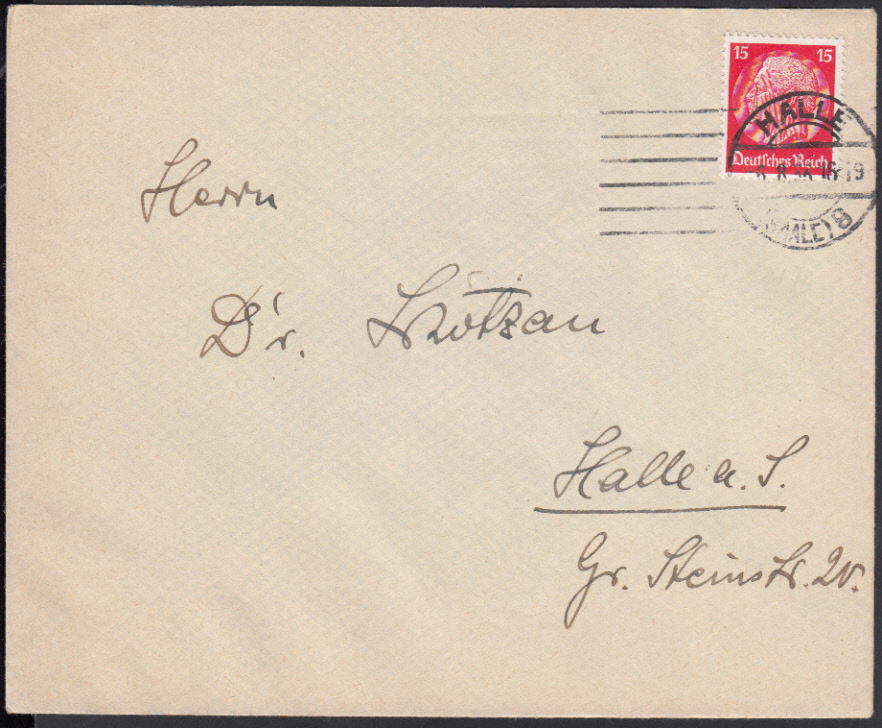 15 15
Deutsches Reich
HALLE
8.36 18-19
(SAALE) 8
Herrn
Dr. Kötzau
Halle a. S.
Gr. Steinstr. 20.